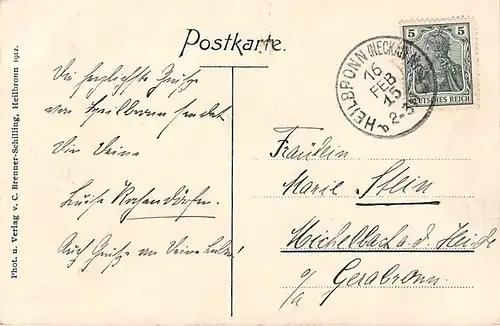 Postkarte.
Die herzlichsten Grüße
von Heilbronn sendet
Dir Deine
Luise
Auch Grüße an Deine
Fräulein
Marie Stein
Michelbach a. d. Heide
o/a Gerabronn.
HEILBRONN (NECKAR)
16
FEB
15
2-3
b
5 5
DEUTSCHES REICH
Phot. u. Verlag v. C. Brenner-Schilling, Heilbronn 1912.